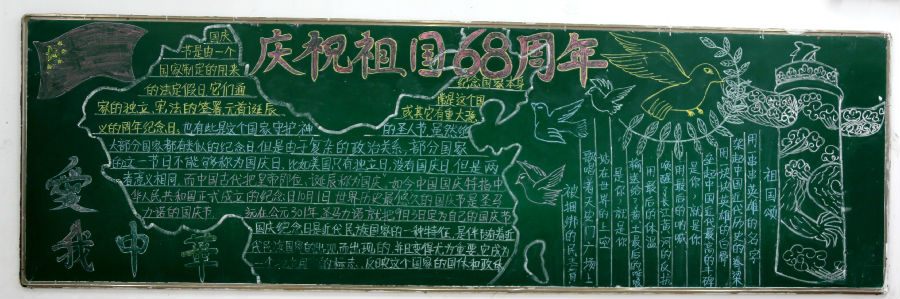 庆祝祖国68周年
国庆
节是由一个
国家制定的用来
的法定假日,它们通
家的独立、宪法的签署、元首诞辰
义的周年纪念日。也有些是这个国家守护神
纪念国家本身
的圣人节。虽然绝
大部分国家都有类似的纪念日,但是由于复杂的政治关系,部分国家
的这一节日不能够称为国庆日,比如美国只有独立日,没有国庆日,但是两
者意义相同。而中国古代把皇帝即位、诞辰称为"国庆"。如今中国国庆特指中
华人民共和国正式成立的纪念日10月1日。世界历史最悠久的国庆节是圣马
力诺的国庆节
在公元301年,圣马力诺就把9月3日定为自己的国庆节
国庆纪念日是近代民族国家的一种特征,是伴随着近
国家的出现而出现的,并且变得尤为重要。它成为
的标志,反映这个国家的国体和政体
爱
我中华
祖国颂
用一串串英雄的名字
架起中国近代历史的脊梁
用一块块英雄的白骨
垒起中国近代最高的丰碑
是你,就是你
用最后的呐喊
唤醒了长江黄河的
用最后的体温
是你,就是你
站在世界的上空
歌唱着天安门广场上
被捆绑的